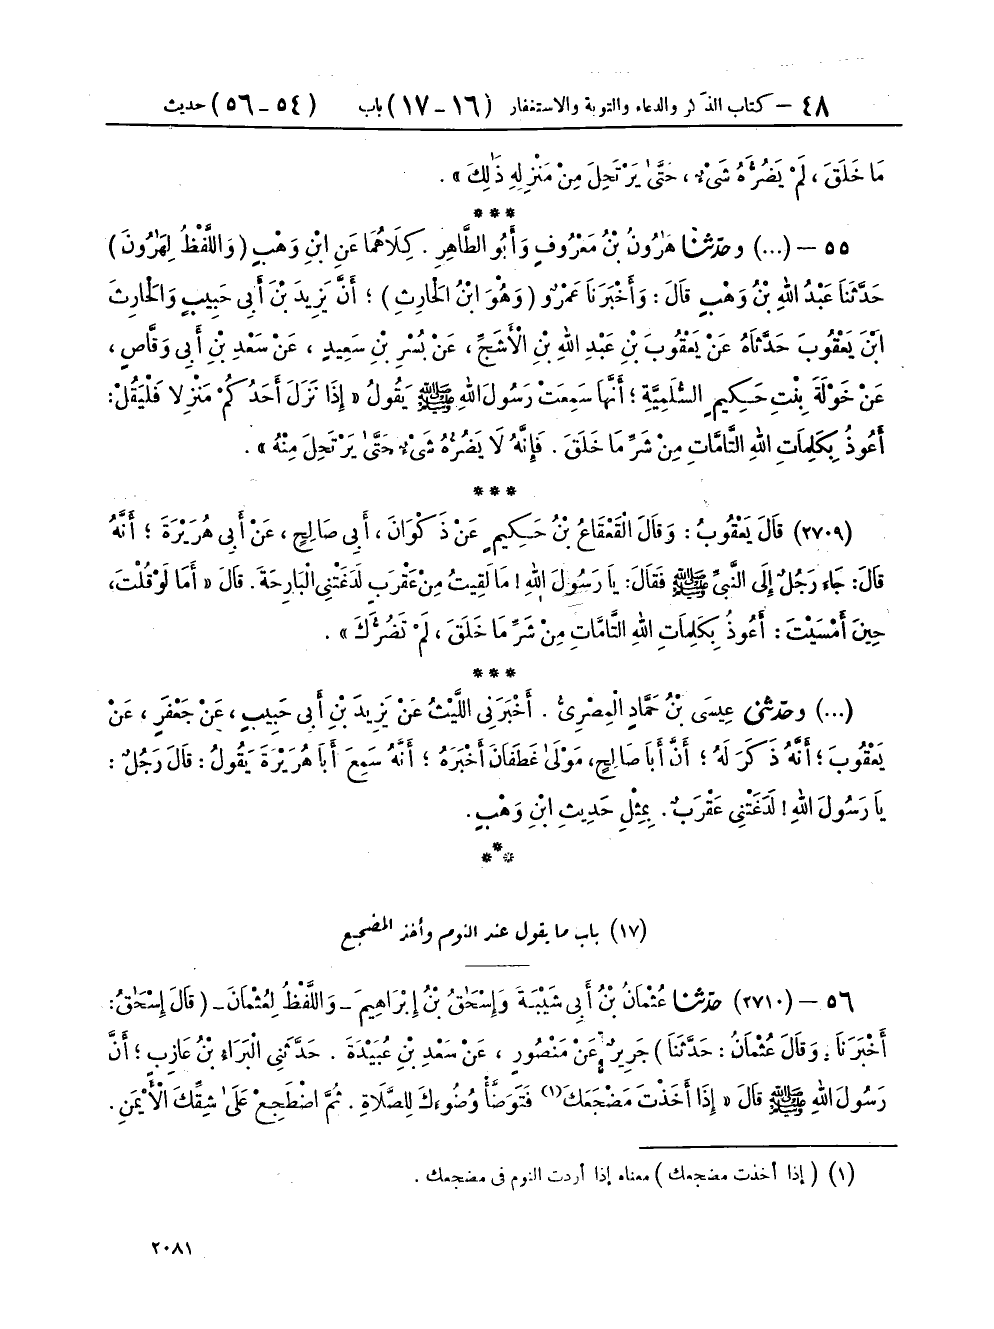 ٤٨ – كتاب الذكر والدعاء والتوبة والاستغفار (١٦ – ١٧) باب (٥٤ – ٥٦) حديث
مَا خَلَقَ ، لَمْ يَضُرُّهُ شَىْءٌ ، حَتَّىٰ يَرْتَحِلَ مِنْ مَنْزِلِهِ ذَٰلِكَ » .
***
٥٥ – (...) وحدّثنا هَٰرُونُ بْنُ مَعْرُوفٍ وَأَبُو الطَّاهِرِ . كِلَاهُمَا عَنِ ابْنِ وَهْبٍ ( وَاللَّفْظُ لِهَٰرُونَ )
حَدَّثَنَا عَبْدُ اللهِ بْنُ وَهْبٍ قَالَ : وَأَخْبَرَنَا عَمْرٌو ( وَهُوَ ابْنُ الْحَارِثِ ) ؛ أَنَّ يَزِيدَ بْنَ أَبِى حَبِيبٍ وَالْحَارِثَ
ابْنَ يَعْقُوبَ حَدَّثَاهُ عَنْ يَعْقُوبَ بْنِ عَبْدِ اللهِ بْنِ الْأَشَجِّ ، عَنْ بُسْرِ بْنِ سَعِيدٍ ، عَنْ سَعْدِ بْنِ أَبِى وَقَّاصٍ ،
عَنْ خَوْلَةَ بِنْتِ حَكِيمٍ السُّلَمِيَّةِ ؛ أَنَّهَا سَمِعَتْ رَسُولَ اللهِ ﷺ يَقُولُ « إِذَا نَزَلَ أَحَدُكُمْ مَنْزِلًا فَلْيَقُلْ :
أَعُوذُ بِكَلِمَاتِ اللهِ التَّامَّاتِ مِنْ شَرِّ مَا خَلَقَ . فَإِنَّهُ لَا يَضُرُّهُ شَىْءٌ حَتَّىٰ يَرْتَحِلَ مِنْهُ » .
***
(٢٧٠٩) قَالَ يَعْقُوبُ : وَقَالَ الْقَعْقَاعُ بْنُ حَكِيمٍ عَنْ ذَكْوَانَ ، أَبِى صَالِحٍ ، عَنْ أَبِى هُرَيْرَةَ ؛ أَنَّهُ
قَالَ : جَاءَ رَجُلٌ إِلَى النَّبِىِّ ﷺ فَقَالَ : يَا رَسُولَ اللهِ ! مَا لَقِيتُ مِنْ عَقْرَبٍ لَدَغَتْنِى الْبَارِحَةَ . قَالَ « أَمَا لَوْ قُلْتَ ،
حِينَ أَمْسَيْتَ : أَعُوذُ بِكَلِمَاتِ اللهِ التَّامَّاتِ مِنْ شَرِّ مَا خَلَقَ ، لَمْ تَضُرَّكَ » .
***
(...) وحدّثنى عِيسَى بْنُ حَمَّادٍ الْمِصْرِىُّ . أَخْبَرَنِى اللَّيْثُ عَنْ يَزِيدَ بْنِ أَبِى حَبِيبٍ ، عَنْ جَعْفَرٍ ، عَنْ
يَعْقُوبَ ؛ أَنَّهُ ذَكَرَ لَهُ ؛ أَنَّ أَبَا صَالِحٍ ، مَوْلَىٰ غَطَفَانَ أَخْبَرَهُ ؛ أَنَّهُ سَمِعَ أَبَا هُرَيْرَةَ يَقُولُ : قَالَ رَجُلٌ :
يَا رَسُولَ اللهِ ! لَدَغَتْنِى عَقْرَبٌ . بِمِثْلِ حَدِيثِ ابْنِ وَهْبٍ .
***
(١٧) باب ما يقول عند النوم وأخذ المضجع
٥٦ – (٢٧١٠) حدّثنا عُثْمَانُ بْنُ أَبِى شَيْبَةَ وَإِسْحَٰقُ بْنُ إِبْرَاهِيمَ – وَاللَّفْظُ لِعُثْمَانَ – ( قَالَ إِسْحَٰقُ :
أَخْبَرَنَا . وَقَالَ عُثْمَانُ : حَدَّثَنَا ) جَرِيرٌ عَنْ مَنْصُورٍ ، عَنْ سَعْدِ بْنِ عُبَيْدَةَ . حَدَّثَنِى الْبَرَاءُ بْنُ عَازِبٍ ؛ أَنَّ
رَسُولَ اللهِ ﷺ قَالَ « إِذَا أَخَذْتَ مَضْجَعَكَ (١) فَتَوَضَّأْ وُضُوءَكَ لِلصَّلَاةِ . ثُمَّ اضْطَجِعْ عَلَىٰ شِقِّكَ الْأَيْمَنِ .
(١) ( إذا أخذت مضجعك ) معناه إذا أردت النوم فى مضجعك .
٢٠٨١